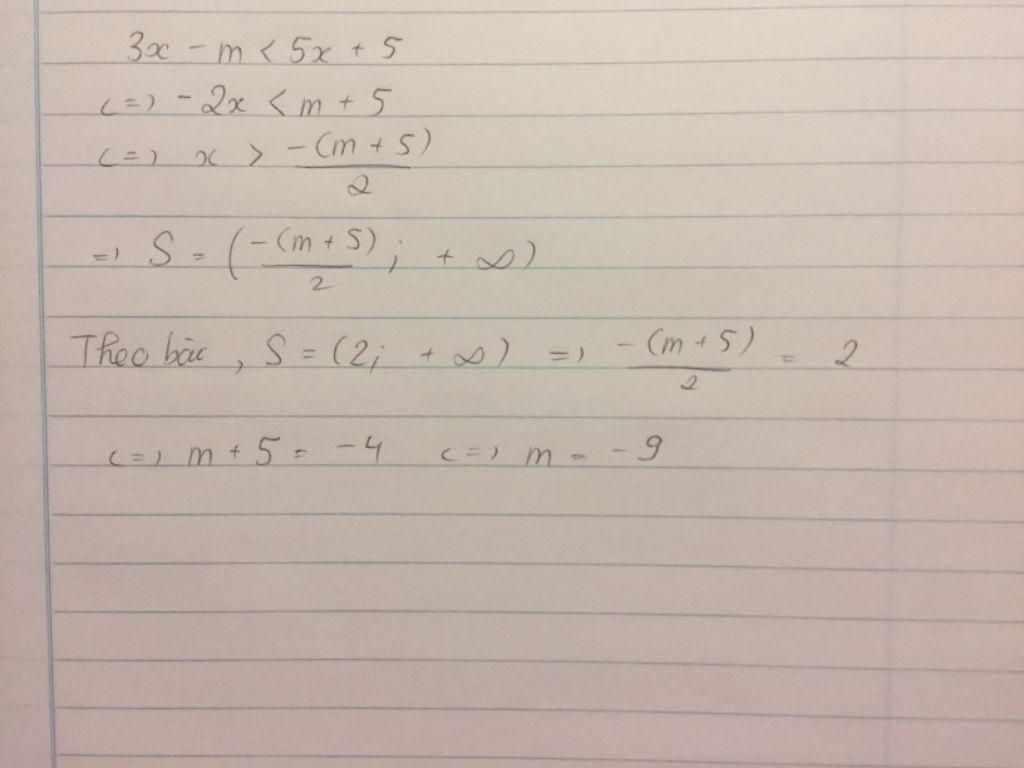 3x - m < 5x + 5
<=> -2x < m + 5
<=> x > -(m + 5)/2
=> S = (-(m + 5)/2; + ∞)
Theo bài, S = (2; + ∞) => -(m + 5)/2 = 2
<=> m + 5 = -4 <=> m = -9